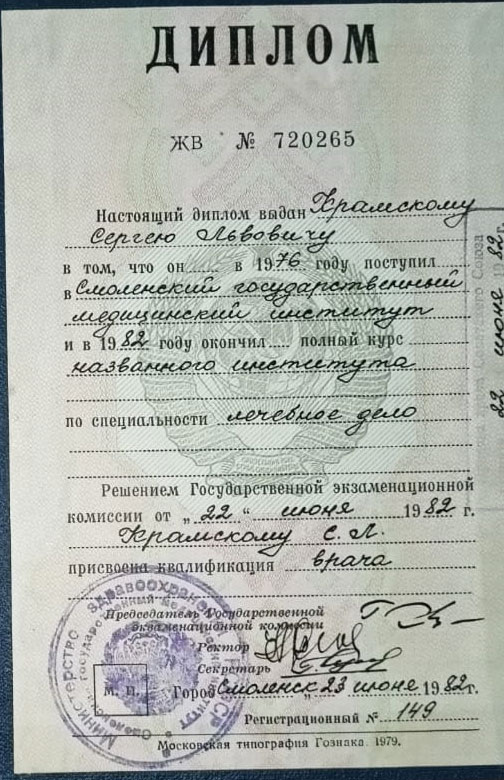 ДИПЛОМ
ЖВ № 720265
Настоящий диплом выдан Храмскому
Сергею Львовичу
в том, что он в 1976 году поступил
в Смоленский государственный
медицинский институт
и в 1982 году окончил полный курс
названного института
по специальности лечебное дело
Решением Государственной экзаменационной
комиссии от „22“ июня 1982 г.
Храмскому С. Л.
присвоена квалификация врача
Председатель Государственной
экзаменационной комиссии
Ректор
Секретарь
М. П. Город Смоленск 23 июня 1982 г.
Регистрационный № 149
Московская типография Гознака. 1979.
Министерство здравоохранения
22 июня 82 г.